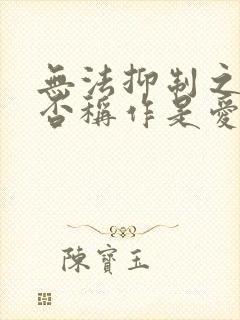 無法抑制之
否稱作是愛
陳寶玉